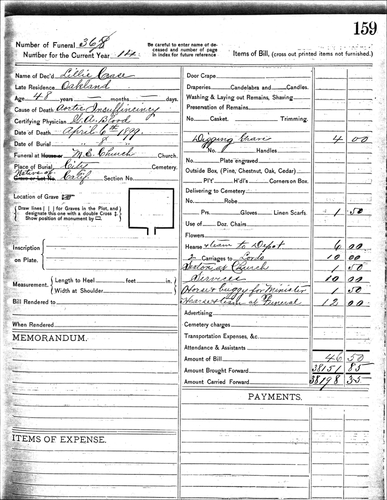 159
Number of Funeral 368
Number for the Current Year 14.
Be careful to enter name of deceased and number of page in index for future reference.
Items of Bill, (cross out printed items not furnished.)
Name of Dec'd Lillie Grace
Late Residence Oakland
Age 48 years — months — days.
Cause of Death Aortic Insufficiency
Certifying Physician S. A. Blood
Date of Death April 6th 1899.
Date of Burial " 8 "
Funeral at House or M.E. Church Church.
Place of Burial City Cemetery.
Native of Calif Section No.
Grave or Lot No.
Location of Grave
Draw lines for Graves in the Plot, and designate this one with a double Cross
Show position of monument by
Inscription on Plate.
Measurement. Length to Heel feet in.
Width at Shoulder
Bill Rendered
When Rendered
MEMORANDUM.
ITEMS OF EXPENSE.
Door Crape
Draperies, Candelabra and Candles
Washing & Laying out Remains, Shaving
Preservation of Remains
No. Casket. Trimming.
Digging Grave 4 00
No. Handles
Plate engraved
Outside Box (Pine, Chestnut, Oak, Cedar)
H'd'ls Corners on Box
Delivering to Cemetery
No. Robe
Prs. Gloves Linen Scarfs. 1 50
Use of Doz. Chairs
Flowers
Hearse & team to Depot 6 00
2 Carriages to 10 00
Sexton at Church 1 50
Services 10 00
Horse & buggy for Minister 1 50
Hearse & team at Funeral 12 00
Advertising
Cemetery charges
Transportation Expenses, &c.
Attendance & Assistants
Amount of Bill 46 50
Amount Brought Forward 38151 85
Amount Carried Forward 38198 35
PAYMENTS.